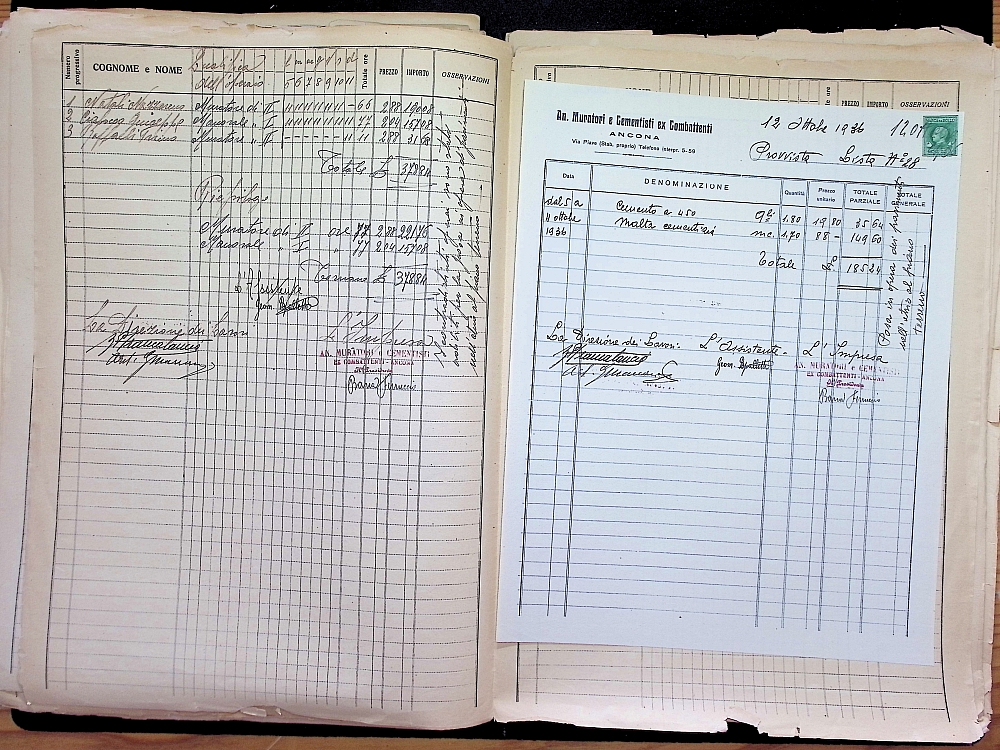 Numero progressivo
COGNOME e NOME
Qualifica
dell'Operaio
l m m g v s d
5 6 7 8 9 10 11
Totale ore
PREZZO
IMPORTO
OSSERVAZIONI
1 Natali Nazzareno Muratore di II 11 11 11 11 11 11 - 66 2.88 190.08
2 Manovale " I 11 11 11 11 11 11 11 77 2.04 157.08
3 Muratore " II - - - - - - 11 11 2.88 31.68
Totale £ 378.84
Riepilogo
Muratore di II ore 77 2.88 221.76
Manovale " I " 77 2.04 157.08
Tornano £ 378.84
L'Assistente
Geom.
La Direzione dei Lavori
L'Impresa
AN. MURATORI e CEMENTISTI
EX COMBATTENTI - ANCONA
Il Presidente
nell'atrio al piano terreno
PREZZO
IMPORTO
OSSERVAZIONI
An. Muratori e Cementisti ex Combattenti
ANCONA
Via Piave (Stab. proprio) Telefono interpr. 5-59
12 Ottobre 1936
Provvista Lista N° 98
Data
DENOMINAZIONE
Quantità
Prezzo unitario
TOTALE PARZIALE
TOTALE GENERALE
dal 5 a Cemento a 450 q.li 1.80 19 80 35 64
11 ottobre Malta cementizia mc. 1,70 88 - 149 60
1936
Totale 185 24
Posa in opera dei pavimenti
nell'atrio al piano
terreno
La Direzione dei Lavori
L'Assistente
L'Impresa
Geom.
AN. MURATORI e CEMENTISTI
EX COMBATTENTI - ANCONA
Il Presidente